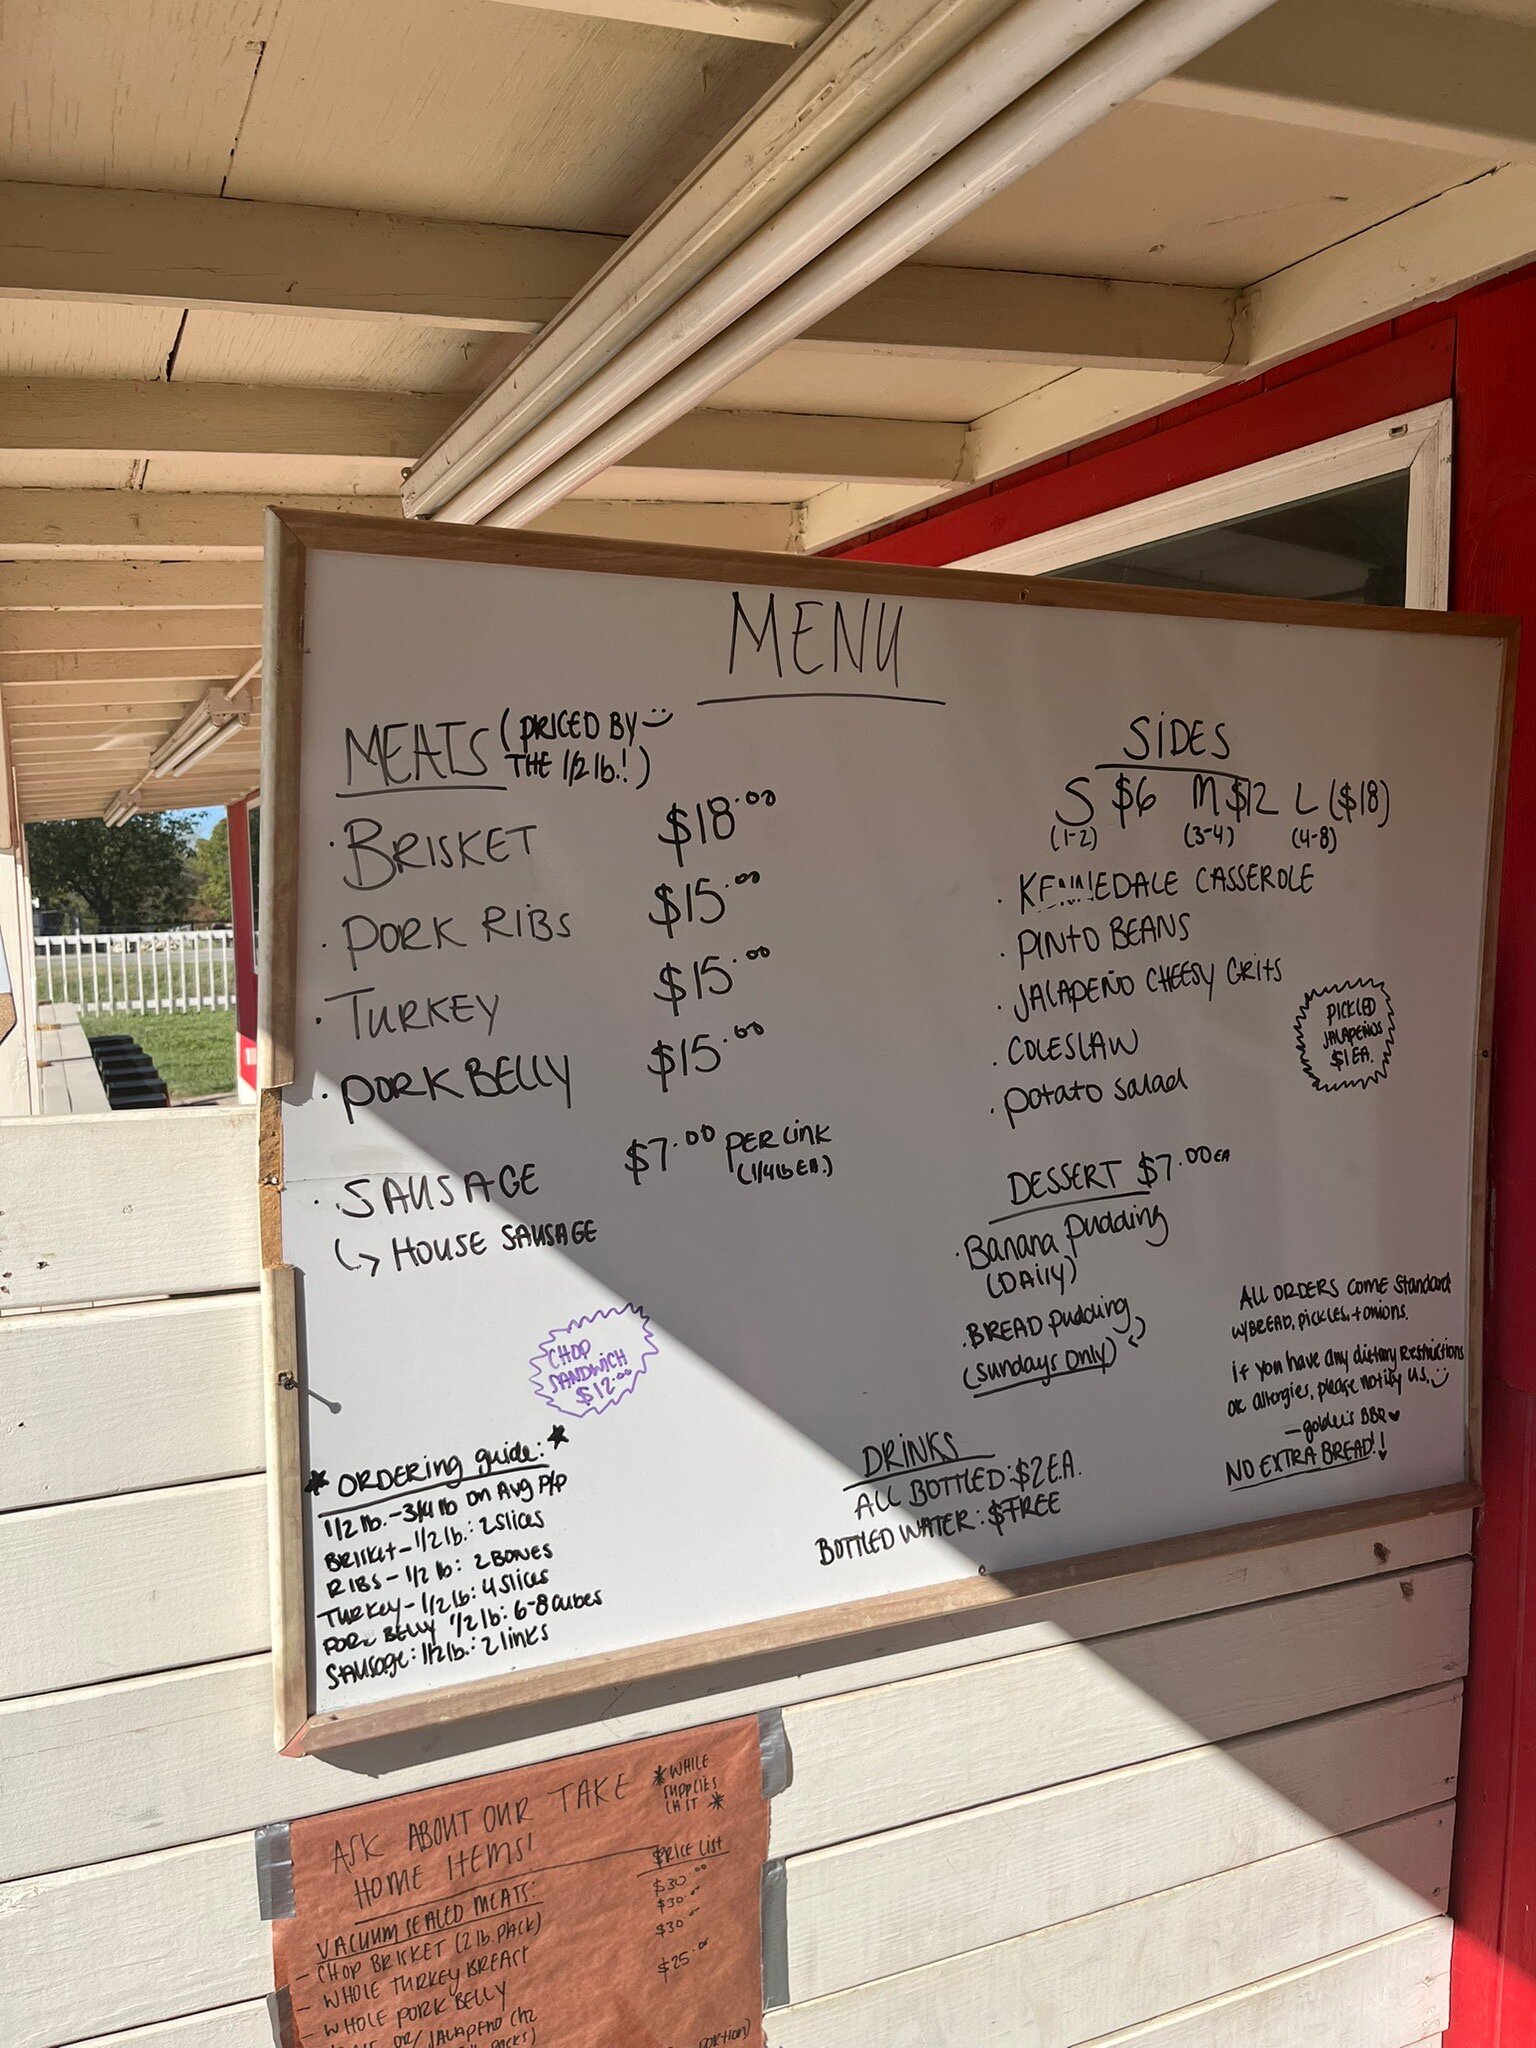 MENU
MEATS (PRICED BY
THE 1/2 lb.!)
· BRISKET $18.00
· PORK RIBS $15.00
· TURKEY $15.00
· PORK BELLY $15.00
· SAUSAGE $7.00 PER LINK
(1/4 lb EA.)
↳ HOUSE SAUSAGE
CHOP
SANDWICH
$12.00
* ORDERING guide: *
1/2 lb. - 3/4 lb on Avg P/P
BRISKET - 1/2 lb.: 2 slices
RIBS - 1/2 lb: 2 BONES
TURKEY - 1/2 lb: 4 slices
PORK BELLY 1/2 lb: 6-8 cubes
SAUSAGE: 1/2 lb.: 2 links
SIDES
S $6 M $12 L ($18)
(1-2) (3-4) (4-8)
· KENNEDALE CASSEROLE
· PINTO BEANS
· JALAPEÑO CHEESY GRITS
· COLESLAW
· Potato Salad
PICKLED
JALAPEÑOS
$1 EA.
DESSERT $7.00 EA
· Banana Pudding
(DAILY)
· BREAD Pudding
(Sundays Only)
ALL ORDERS COME Standard
W/ BREAD, PICKLES, + onions.
if you have any dietary Restrictions
OR Allergies, please notify us.
- goldee's BBQ
NO EXTRA BREAD!!
DRINKS
ALL BOTTLED: $2 EA.
BOTTLED WATER: $FREE
ASK ABOUT OUR TAKE
HOME ITEMS!
*WHILE
SUPPLIES
LAST*
VACUUM SEALED MEATS: PRICE LIST
- CHOP BRISKET (2 lb. PACK) $30.00
- WHOLE TURKEY BREAST $30.00
- WHOLE PORK BELLY $30.00
OR/ JALAPENO CHZ $25.00
PACKS)
PORTION)